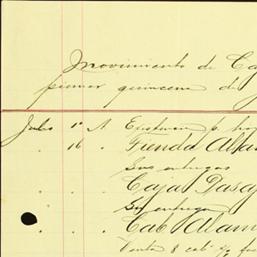 Movimiento de Ca
primer quincena de J
Julio 1º A Existencia p. hoy
" 16 " Tienda Alla
Sus entregas
" " Caja Pasaj
Su entrega
" " Cab Alam
Venta 8 cab